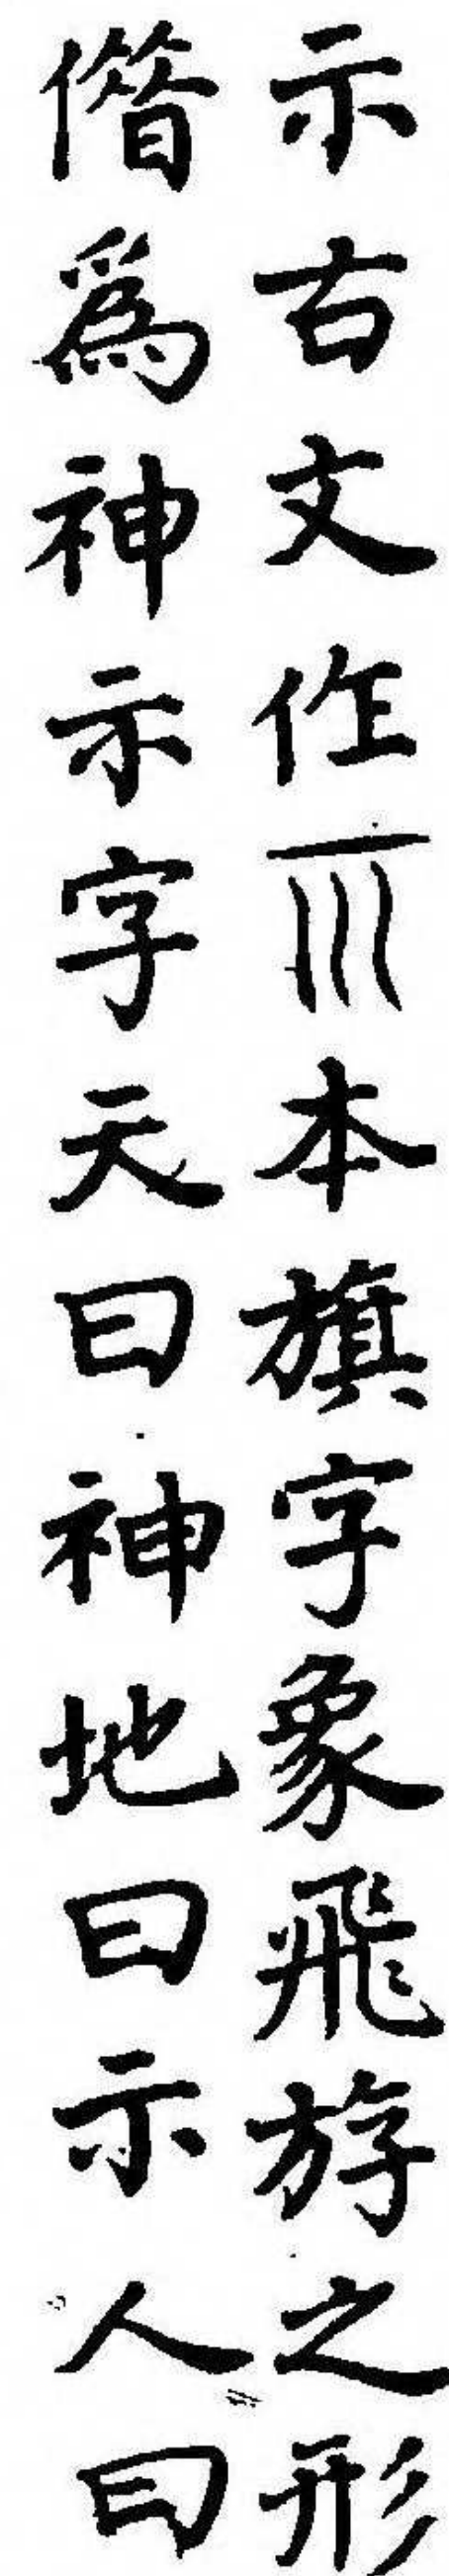 示古文作𥘅本旗字象飛斿之形
僣爲神示字天曰神地曰示人曰